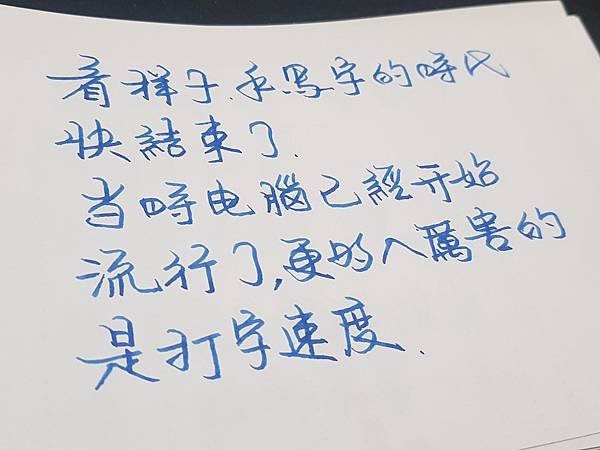 看样子.手写字的時代
快結束了.
当時电腦已經开始
流行了,更厲害的
是打字速度.